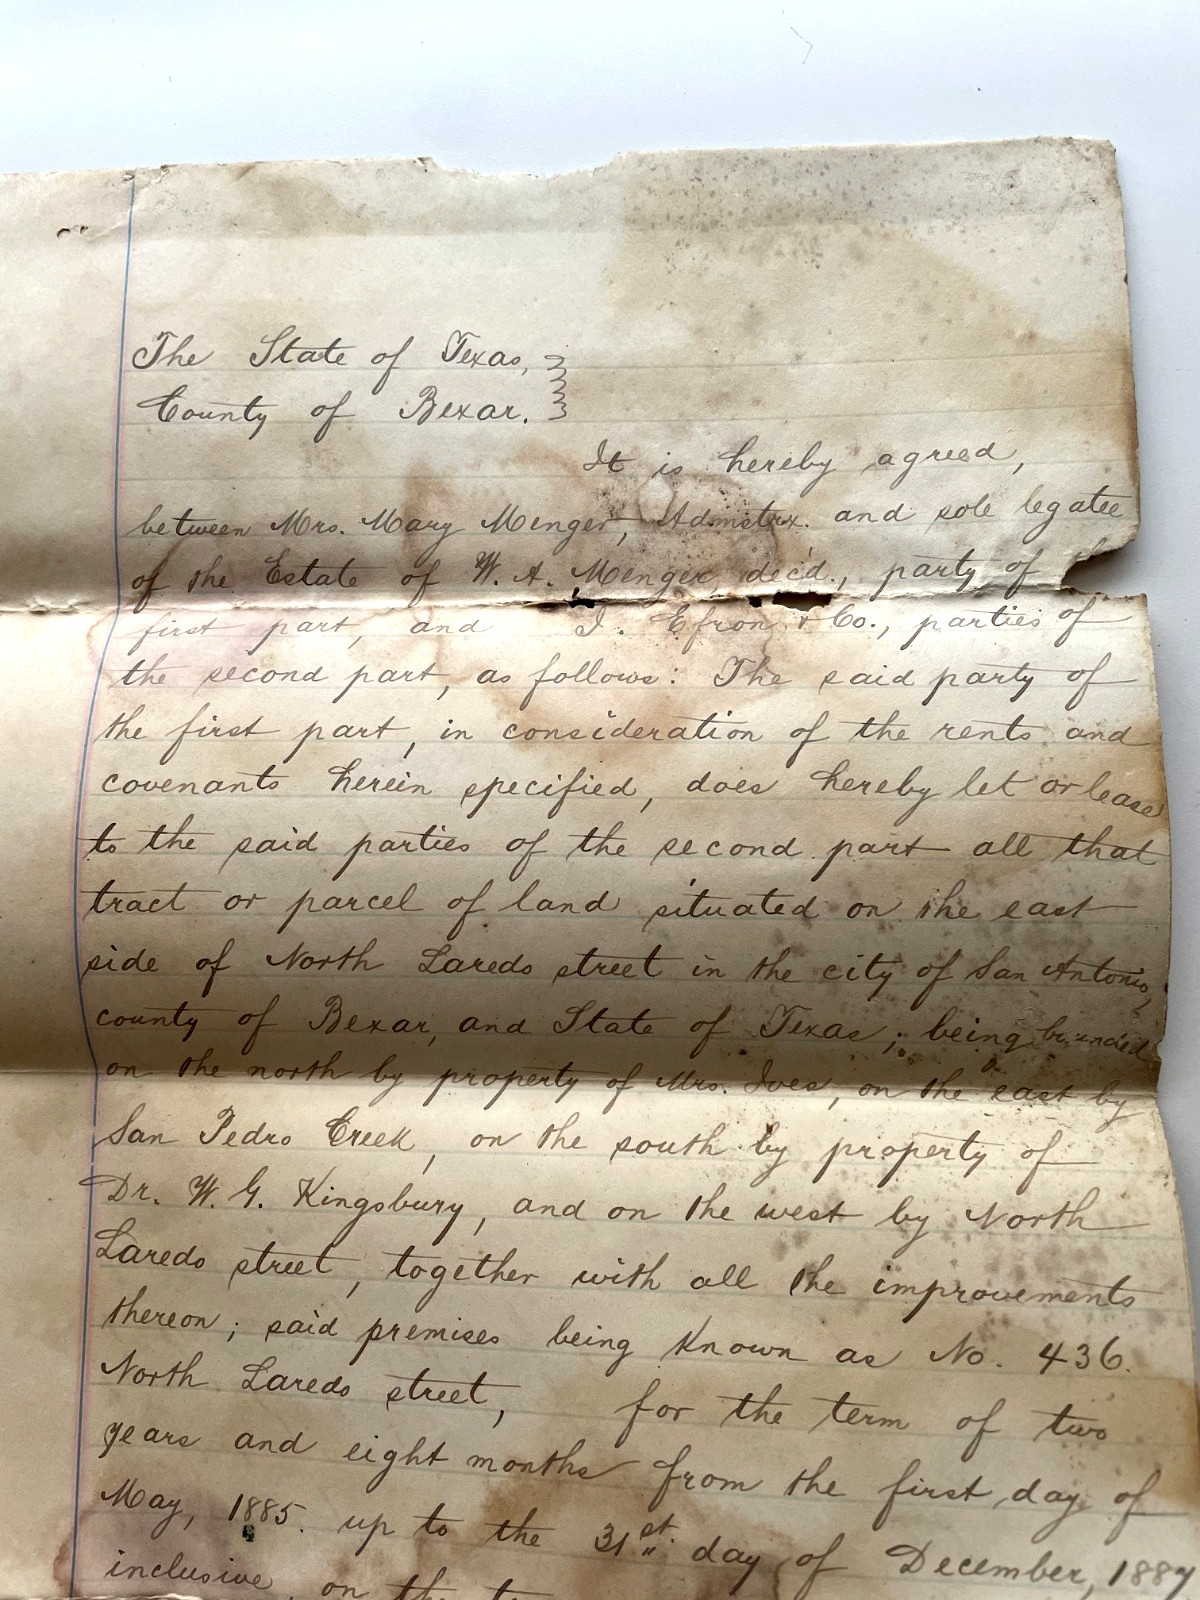 The State of Texas,
County of Bexar.
It is hereby agreed,
between Mrs. Mary Menger, Admstrx. and sole legatee
of the Estate of W. A. Menger, dec'd., party of
first part, and I. Efron & Co., parties of
the second part, as follows: The said party of
the first part, in consideration of the rents and
covenants herein specified, does hereby let or lease
to the said parties of the second part all that
tract or parcel of land situated on the east
side of North Laredo street in the city of San Antonio,
county of Bexar, and State of Texas; being bounded
on the north by property of Mrs. Ives, on the east by
San Pedro Creek, on the south by property of
Dr. W. G. Kingsbury, and on the west by North
Laredo street, together with all the improvements
thereon; said premises being known as No. 436.
North Laredo street, for the term of two
years and eight months from the first day of
May, 1885. up to the 31st day of December, 1887
inclusive, on the